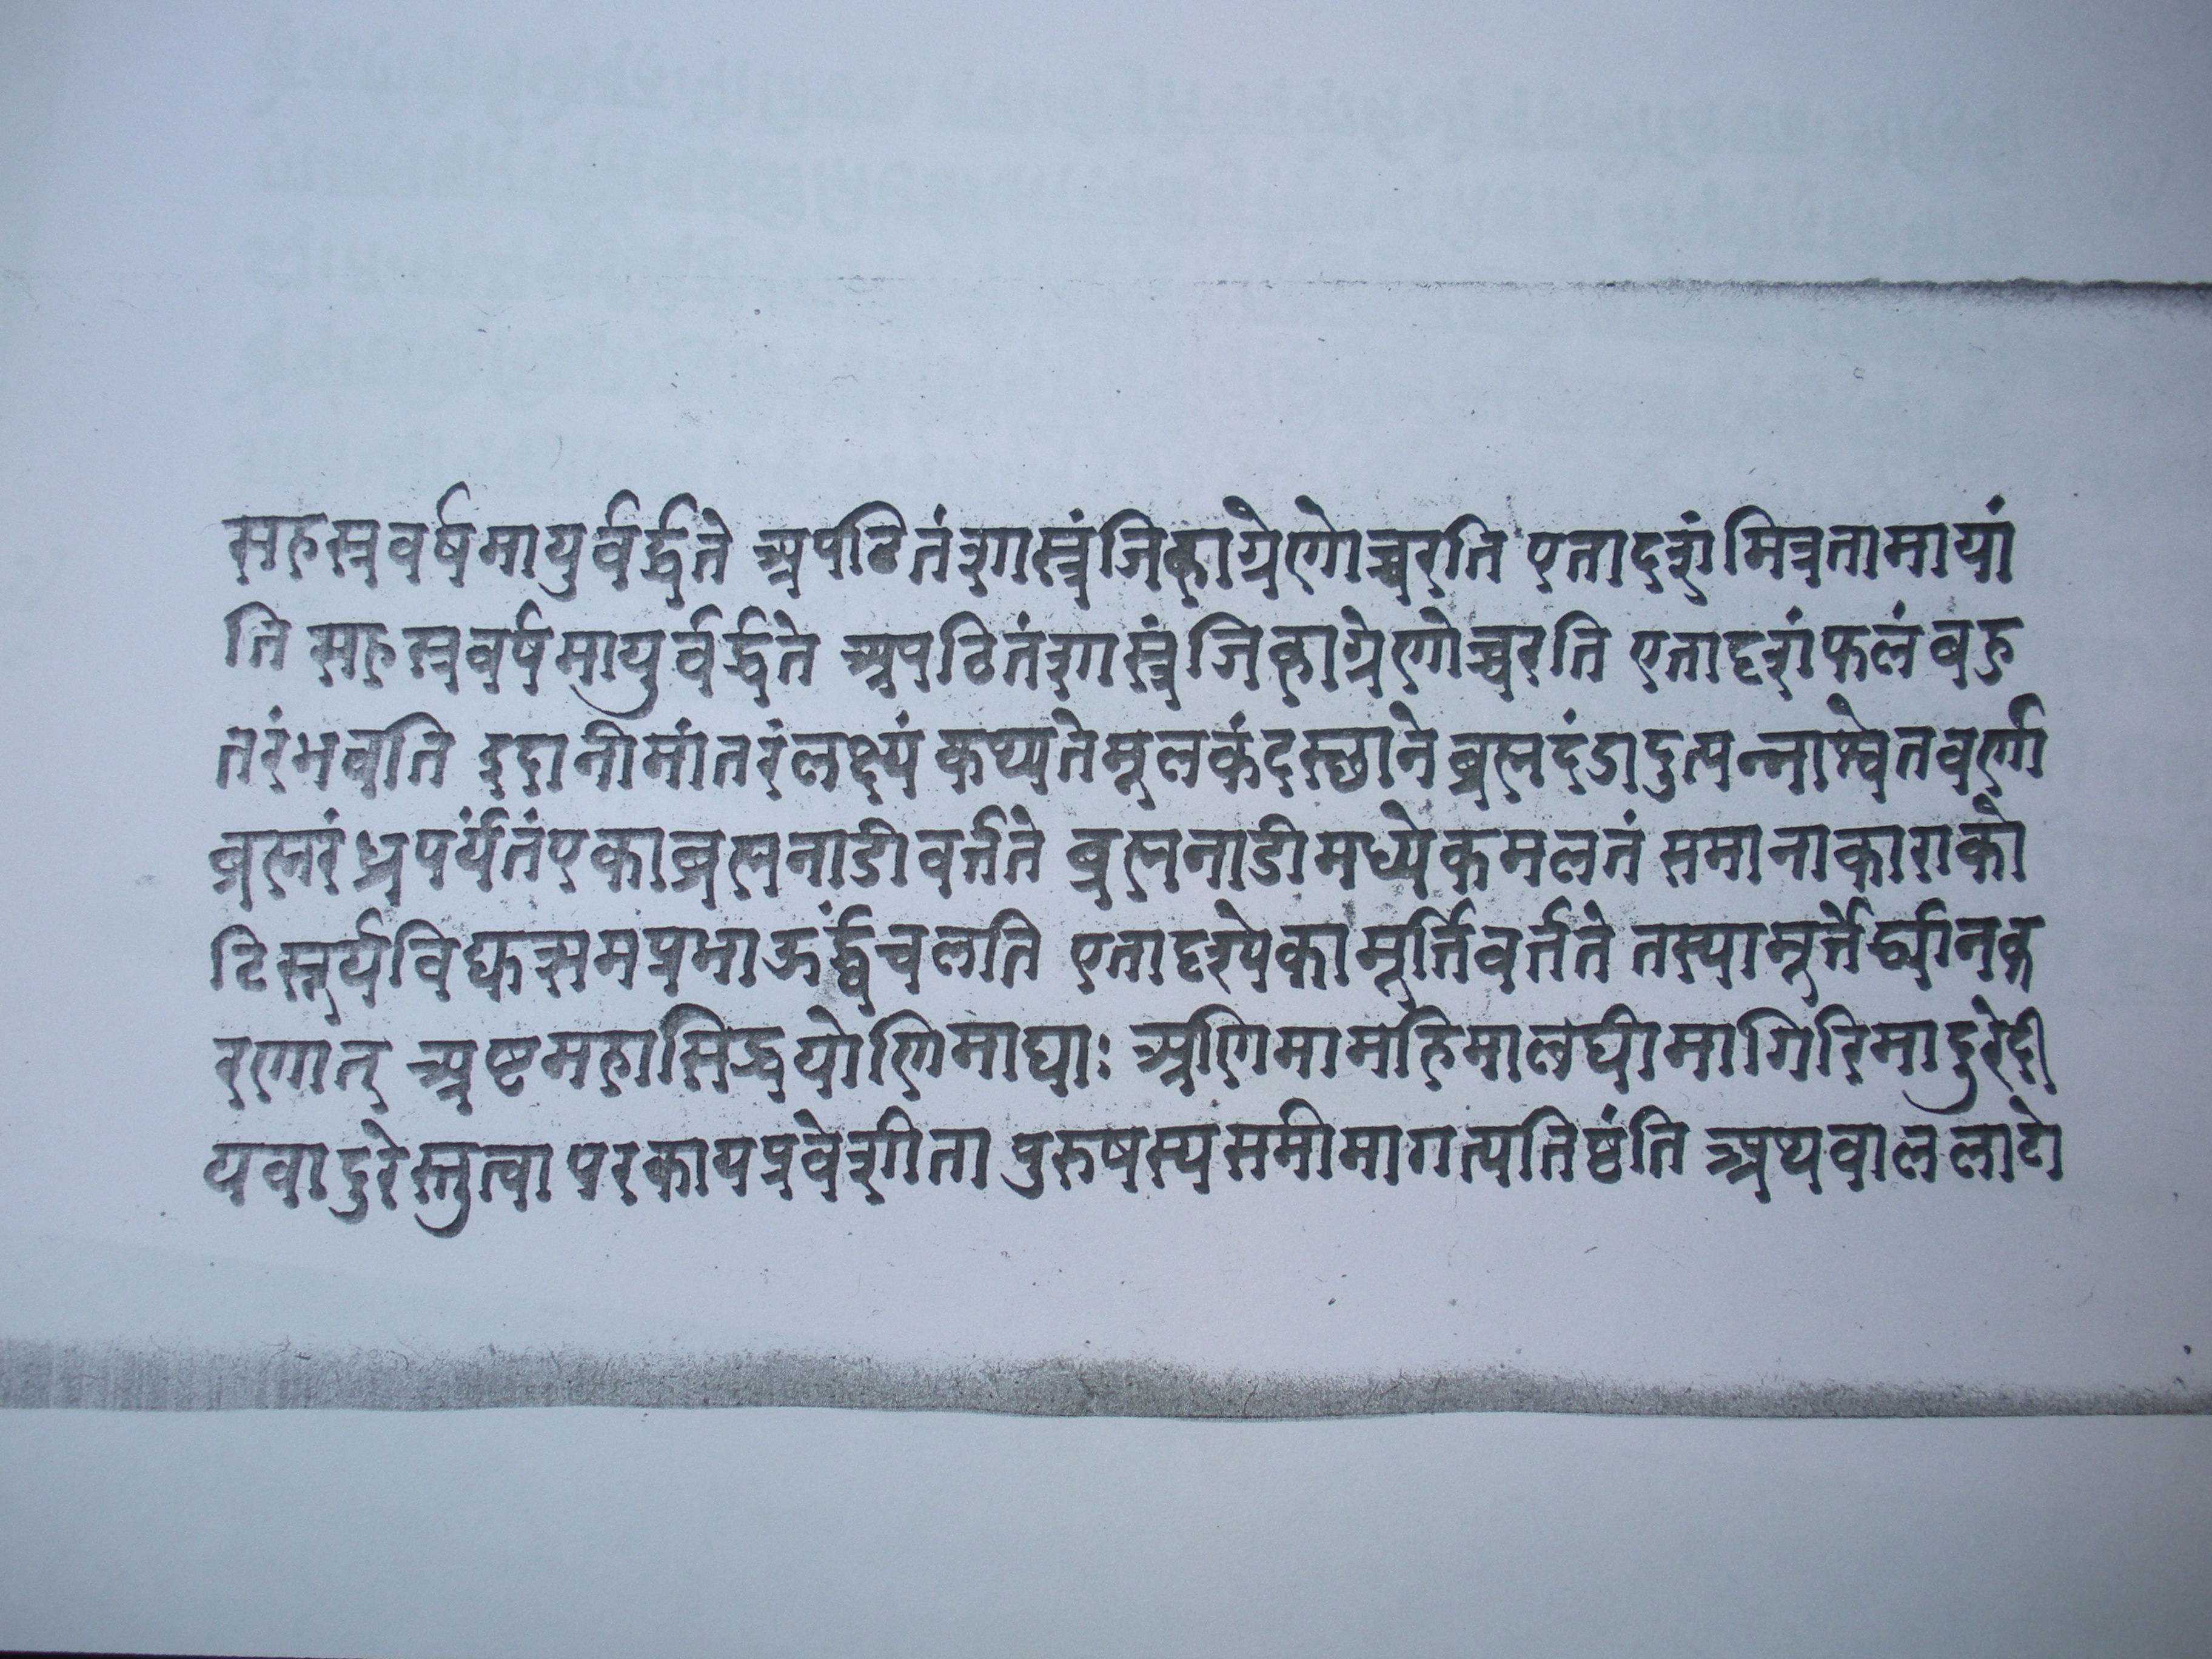 सहस्रवर्षमायुर्वर्द्धते अपठितंशास्त्रंजिह्वाग्रेणोच्चरति एतादृशंमित्रतामायां
ति सहस्रवर्षमायुर्वर्द्धते अपठितंशास्त्रंजिह्वाग्रेणोच्चरति एतादृशंफलंबहु
तरंभवति इदानीमांतरंलक्ष्यं कथ्यतेमूलकंदस्छाने ब्रह्मदंडादुत्पन्नाश्वेतवर्णा
ब्रह्मरंध्रपर्यंतंएकाब्रह्मनाडीवर्त्तते ब्रह्मनाडीमध्येकमलतं समानाकाराको
टिसूर्यविद्युत्समप्रभाऊर्द्ध्वंचलति एतादृश्येकामूर्त्तिवर्त्तते तस्यामूर्त्तेर्ध्यानक
रणात् अष्टमहासिद्धयोणिमाद्याः अणिमामहिमालघीमागिरिमादुरेदी
यवादुरेस्तुत्वा परकायप्रवेशीता पुरुषस्यसमीमागत्यतिष्ठंति अथवाललाटो